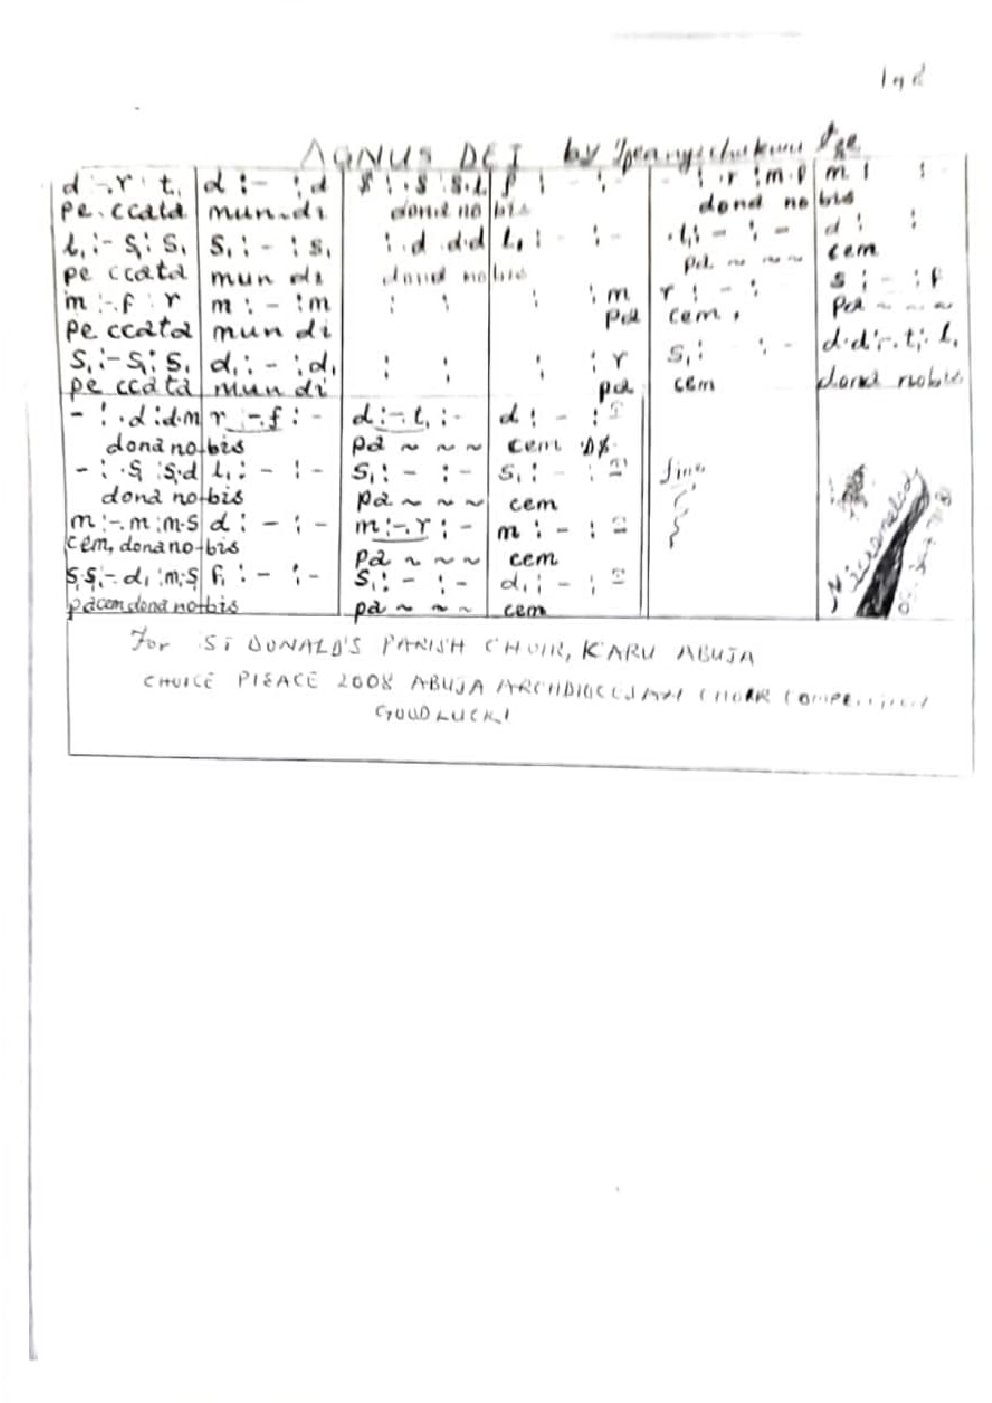 AGNUS DEI by
d :-.r : t, | d :- :d | s : .s :s.l | f : - :- | - : .r :m.f | m : :
pe.ccata mun.di dona no bis dona no bis
l, :- s, : s, | s, : - : s, | : .d .d.d | l, : - : - | .l, : - : - | d : :
pe ccata mun di dona no bis pa ~ ~ ~ cem
m :-.f : r | m : - :m | : : | : : m | r : - : | s : - : f
pe ccata mun di pa cem, pa ~ ~ ~
s, :- s, : s, | d, : - : d, | : : | : : r | s, : : - | d.d :-.t, : l,
pe ccata mun di pa cem dona nobis
- : .d :d.m | r :-.f : - | d :-.t, :- | d : - :
dona no-bis pa ~ ~ ~ cem
- : .s, :s,.d | l, : - : - | s, : - : - | s, : - : = | fine
dona no-bis pa ~ ~ ~ cem
m :-.m :m.s | d : - : - | m :-.r : - | m : - : =
cem, dona no-bis pa ~ ~ ~ cem
s,.s, :- d, :m.s | f, : - : - | s, : - : - | d, : - : =
pacem dona no-bis pa ~ ~ ~ cem
For ST DONALD'S PARISH CHOIR, KARU ABUJA
CHOICE PIEACE 2008 ABUJA ARCHDIOCESAN CHOIR COMPETITION
GOODLUCK!